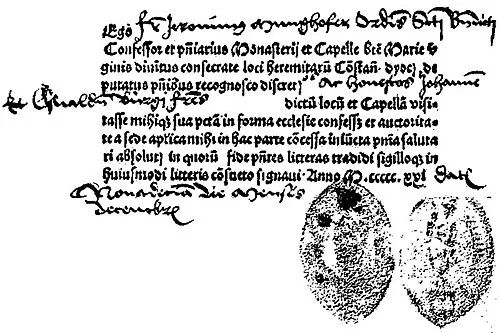 Ego fr Jeronimus Munghofer Ordis Scti Bndicti
Confessor et pñiarius Monasterij et Capelle bte Marie v
ginis diuitus consecrate loci heremitarũ Cõstañ. dyoc. de
putatus pñibus recognosco discret Johannem
et fres dictũ locũ et Capellã visi
tasse mihiqʒ sua pctã in forma ecclesie confessʒ et auctorita
te a sede aplica mihi in hac parte cõcessa iniũcta pñia saluta
ri absoluti in quorũ fide pñtes litteras tradidi sigilloqʒ in
huiusmodi litteris cõsueto signaui · Anno M.ccccc.xxi Dat
die Mensis
Decembris